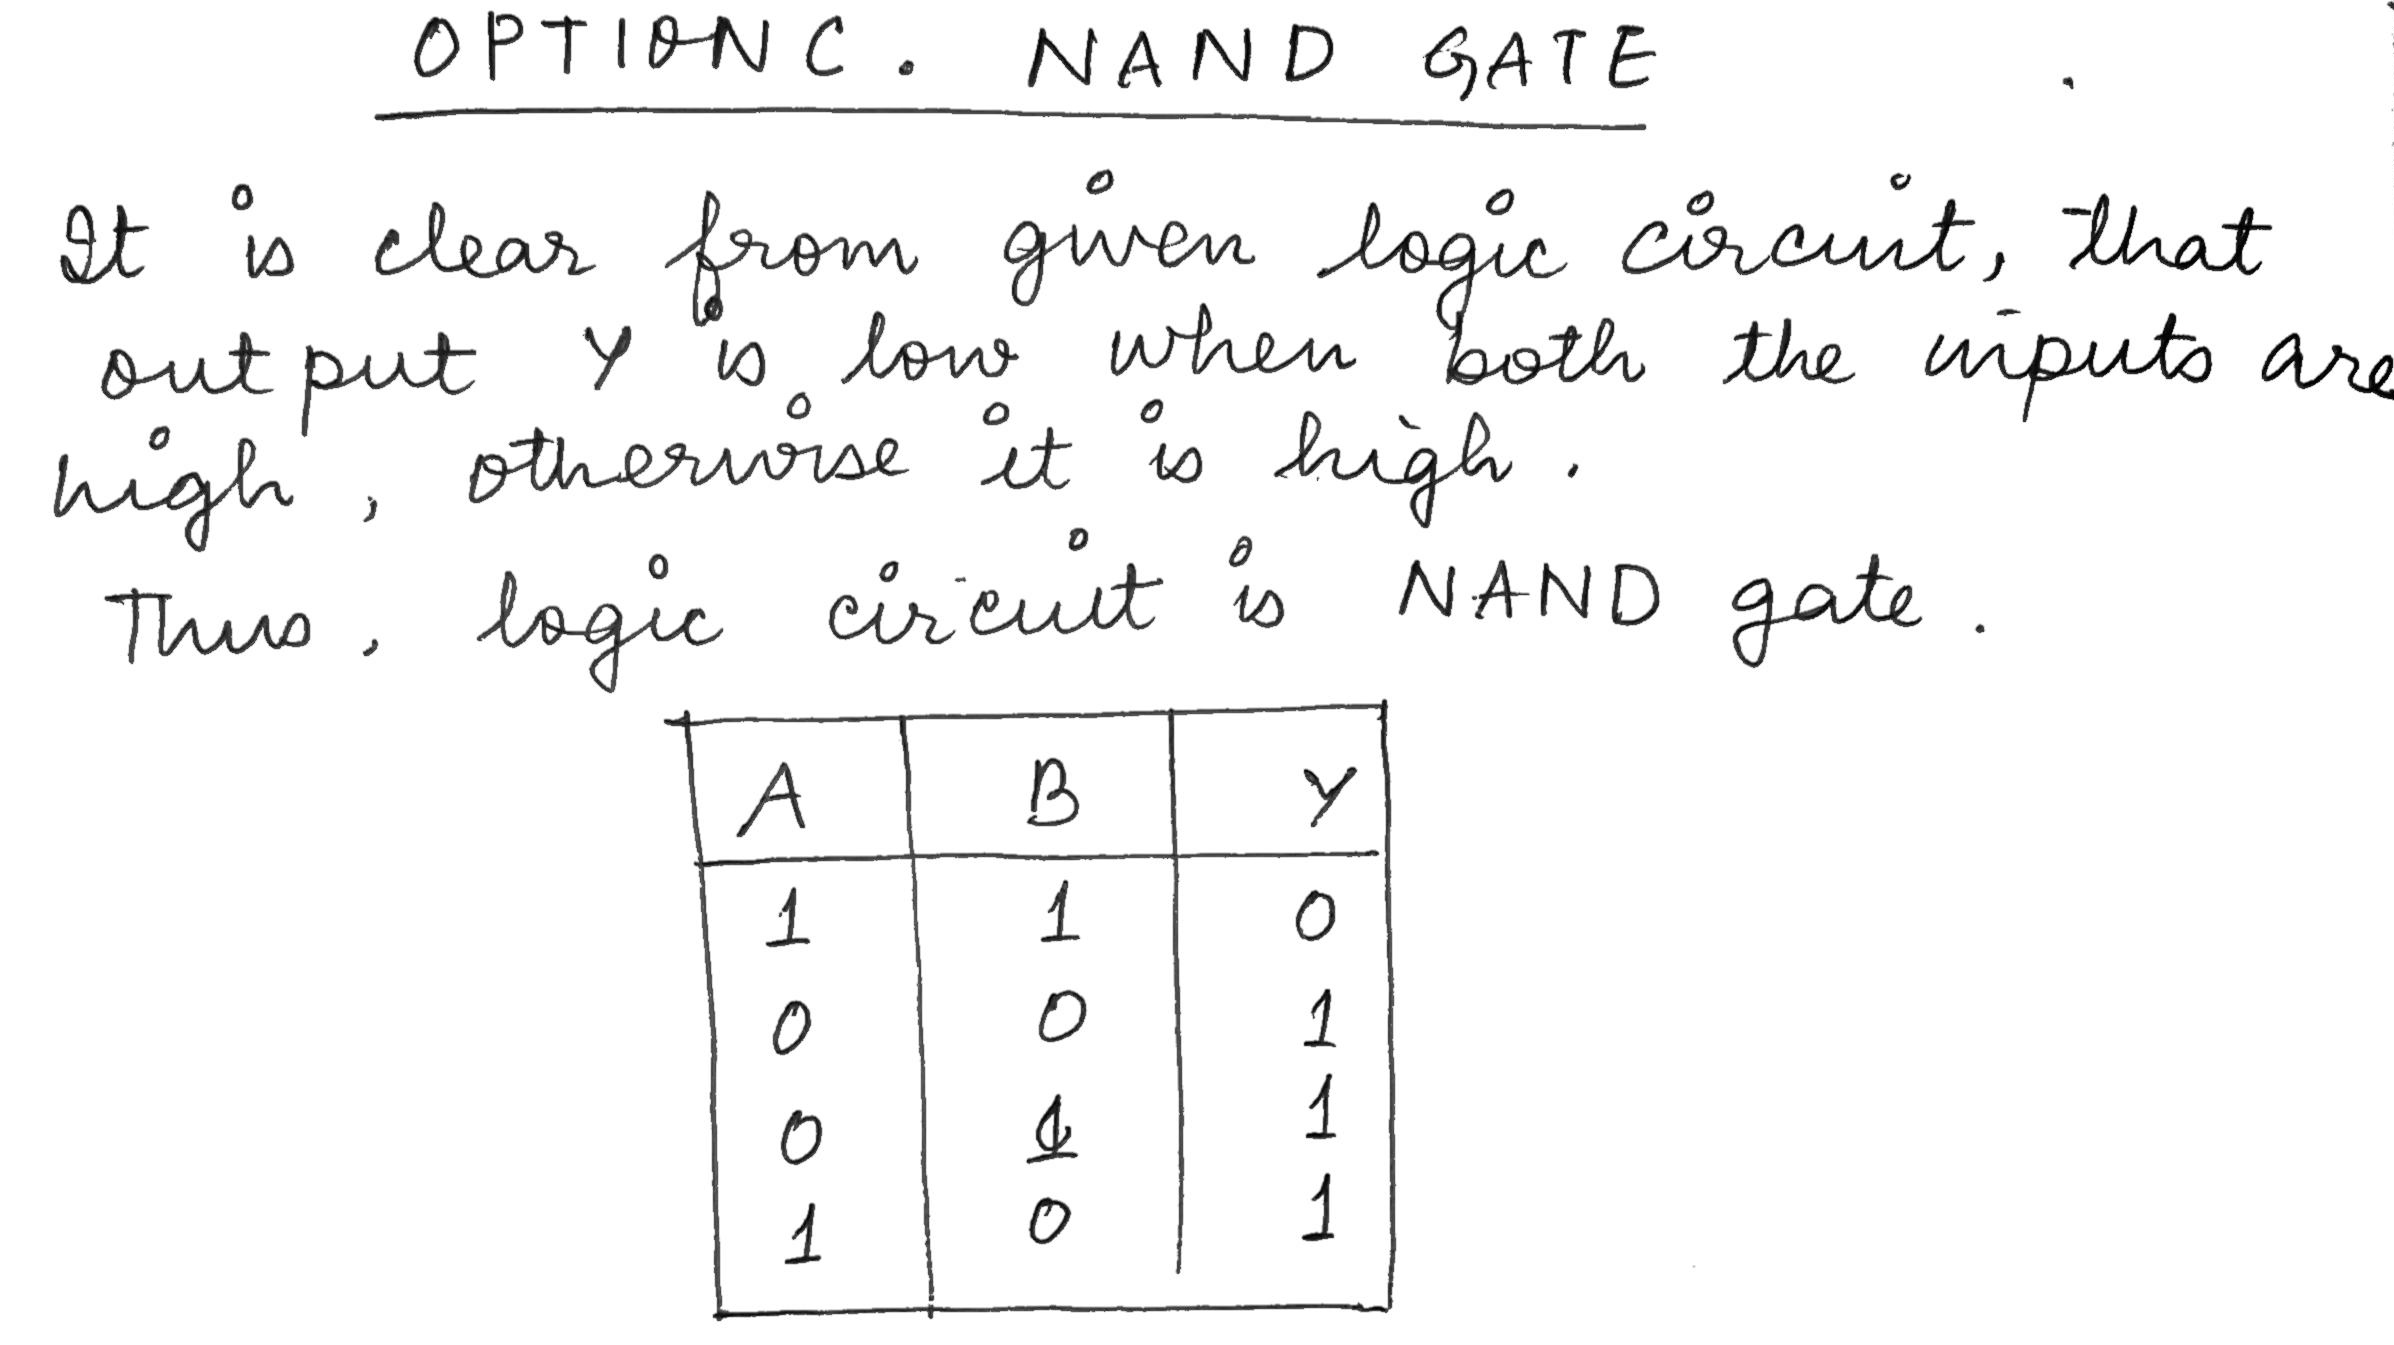 OPTION C. NAND GATE
It is clear from given logic circuit, that
output Y is low when both the inputs are
high, otherwise it is high.
Thus, logic circuit is NAND gate.
A B Y
1 1 0
0 0 1
0 1 1
1 0 1